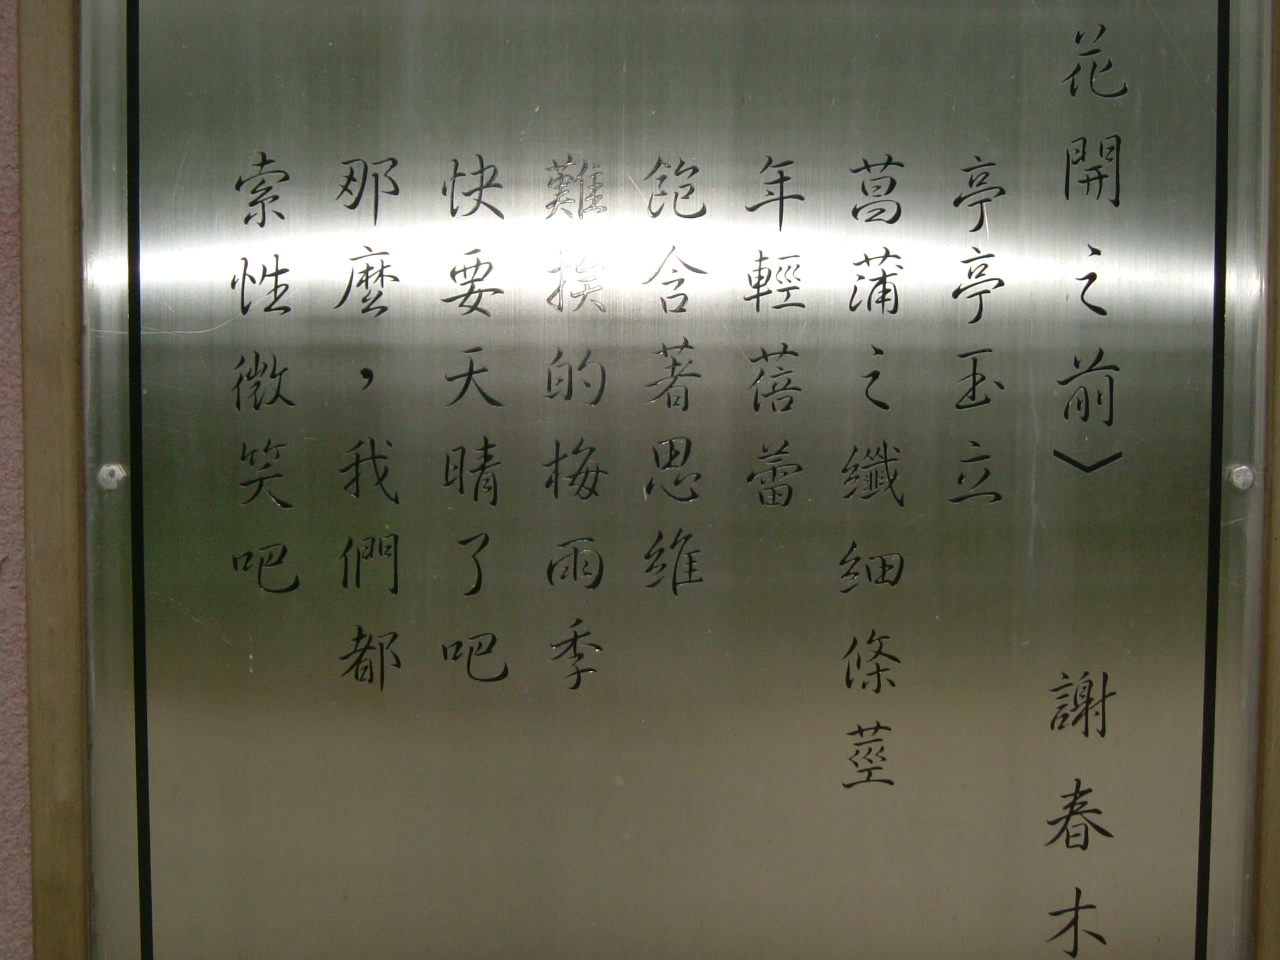 花開之前〉 謝春木
亭亭玉立
菖蒲之纖細條莖
年輕蓓蕾
飽含著思維
難挨的梅雨季
快要天晴了吧
那麼，我們都
索性微笑吧